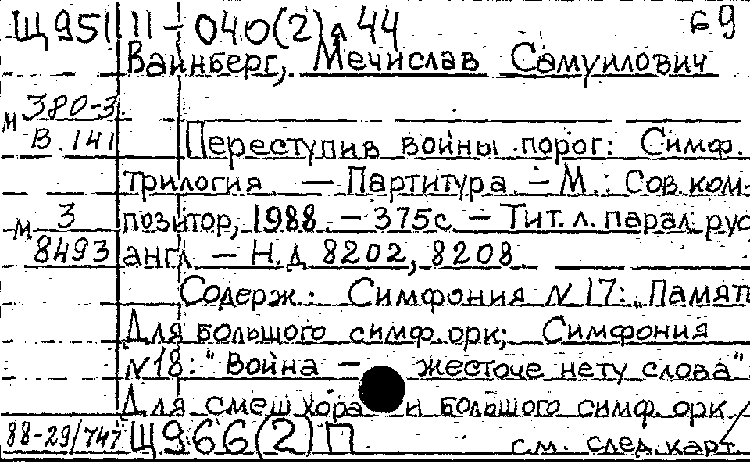 Щ951 II-040(2) л 44 69
Вайнберг, Мечислав Самуилович
м 380-3
В.141 Переступив войны порог: Симф.
трилогия. — Партитура. — М.: Сов. ком-
м 3 позитор, 1988. — 375с. — Тит. л. парал. рус.
8493 англ. — Н.д. 8202, 8208
Содерж.: Симфония N17: "Памят
Для большого симф. орк; Симфония
N18: "Война — жесточе нету слова"
Для смеш хора и большого симф. орк/
88-29/747 Щ966(2)П см. след. карт.